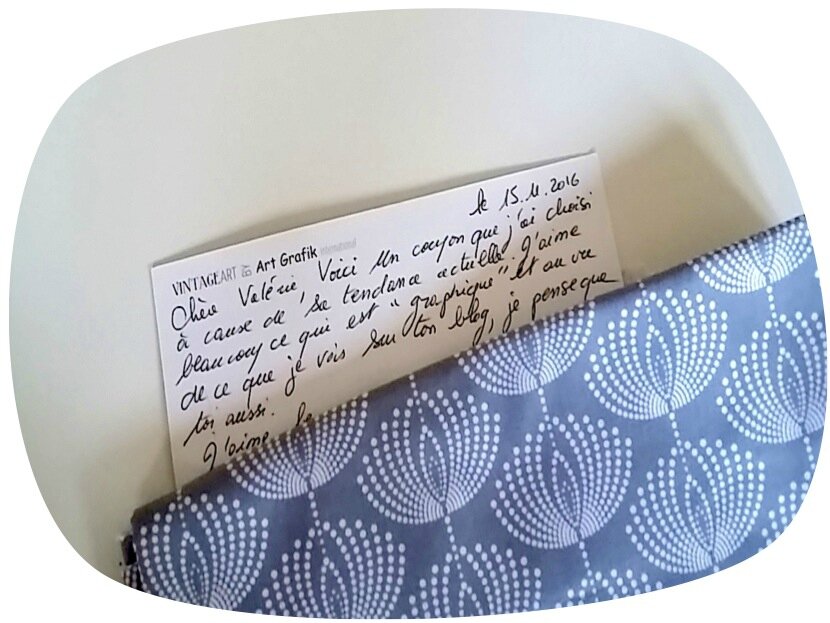 le 15.11.2016
VINTAGEART by Art Grafik international
Chère Valérie, Voici un coupon que j'ai choisi
à cause de sa tendance actuelle. J'aime
beaucoup ce qui est "graphique" et au vu
de ce que je vois sur ton blog, je pense que
toi aussi.
J'aime le